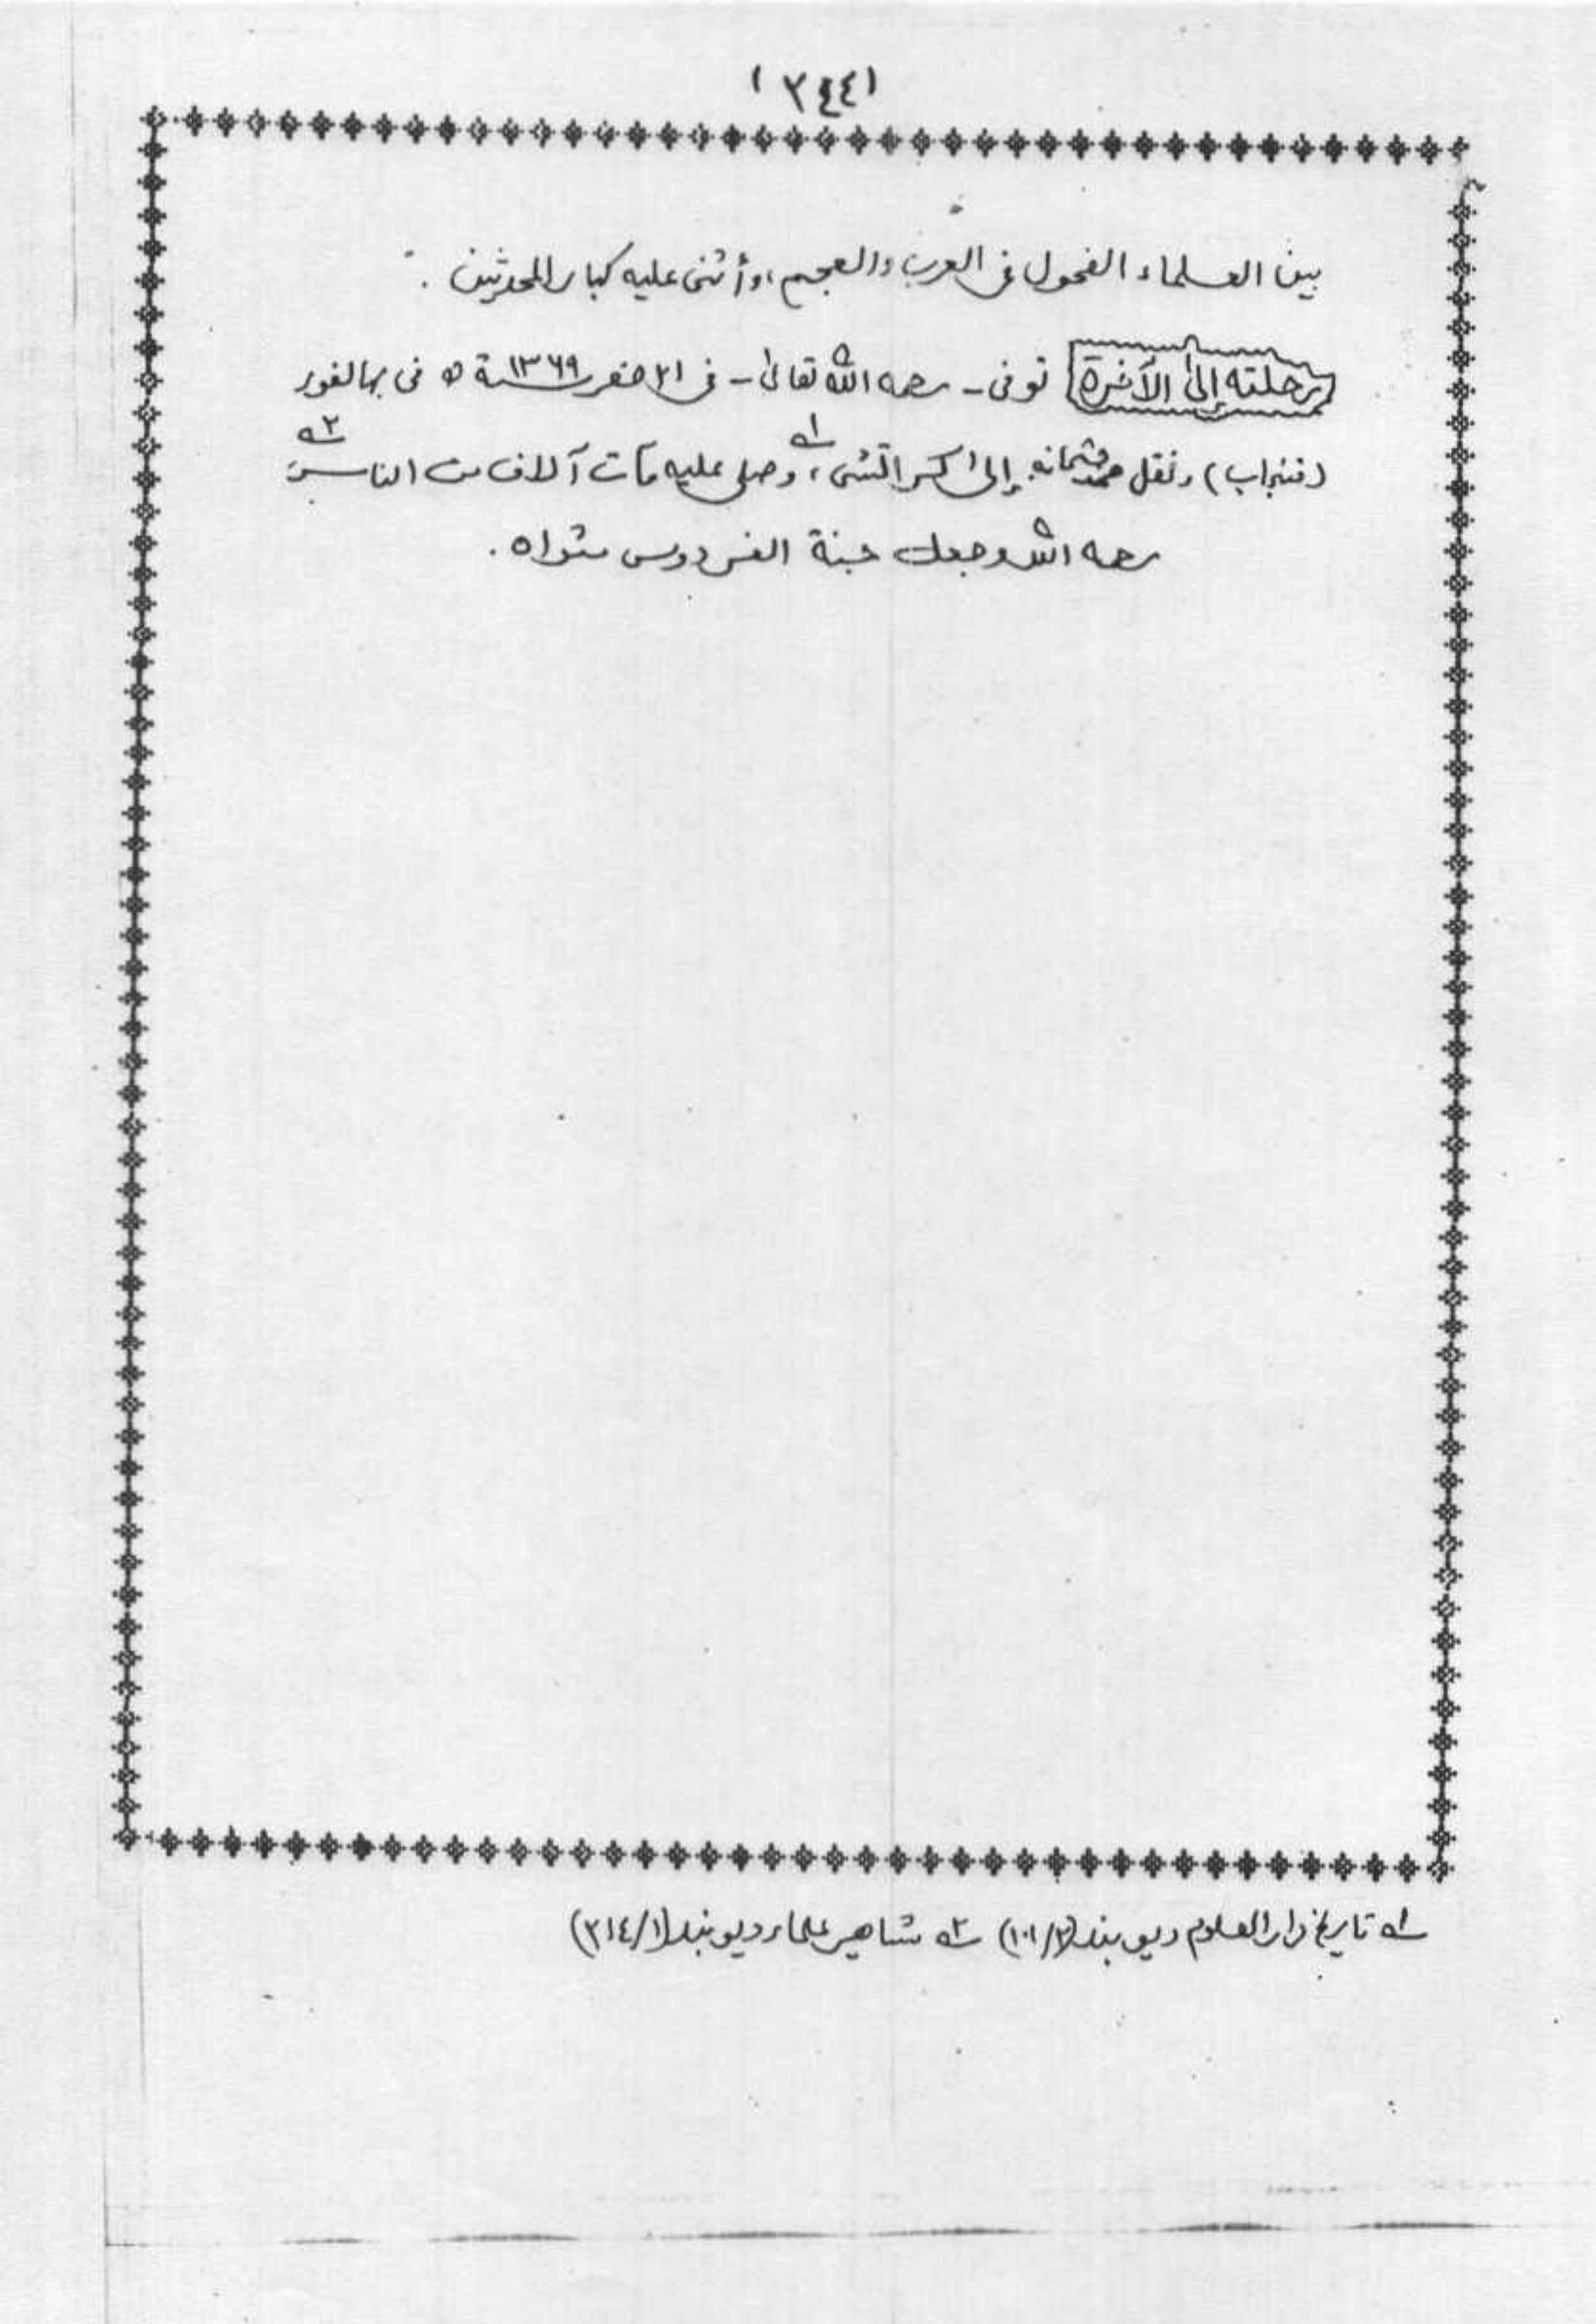 (٣٤٤)
بين العلماء الفحول في العرب والعجم، وأثنى عليه كبار المحدثين.
رحلته إلى الآخرة توفى - رحمه الله تعالى - في ٢١ صفر سنة ١٣٦٩ ه في بهالفور
(فنجاب) ونقل جثمانه إلى كراتشى،١ وصلى عليه مآت آلاف من الناس٢
رحمه الله وجعل جنة الفردوس مثواه.
١ تاريخ دار العلوم ديوبند (٢/١٠١) ٢ مشاهير علماء ديوبند (١/٣١٤)